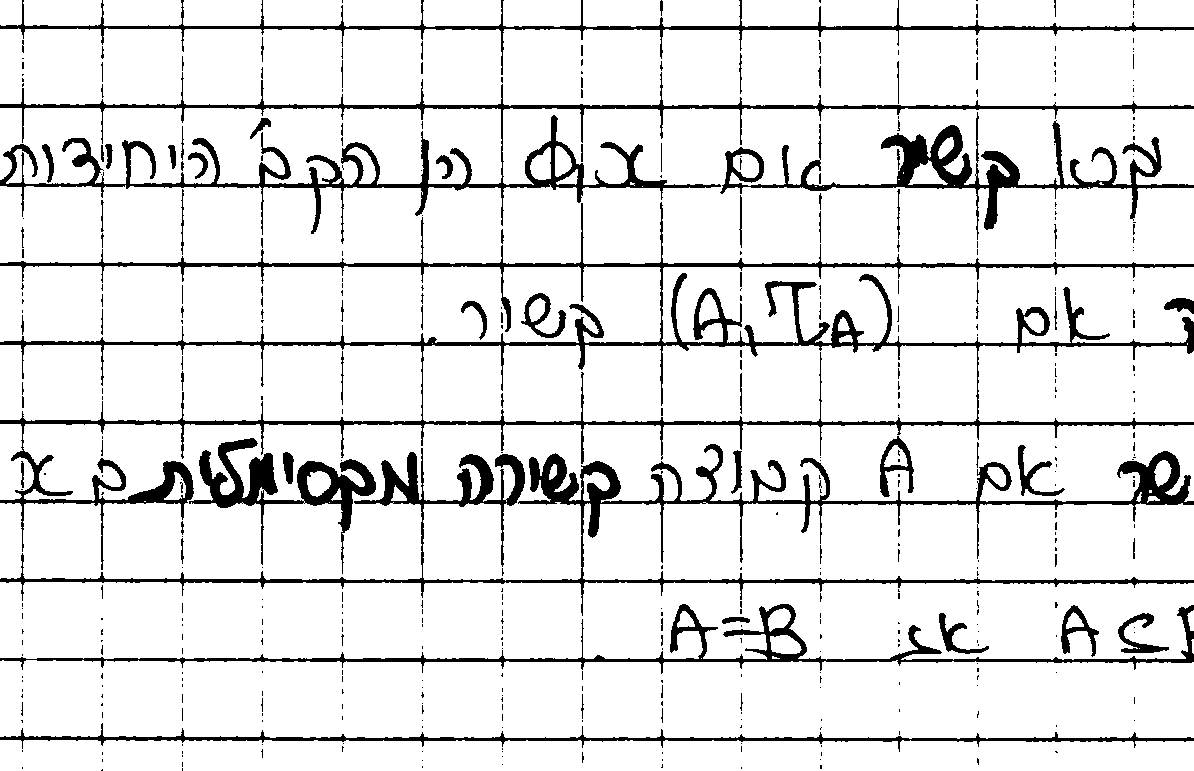 נקרא קשיר אם X,∅ הן הקב' היחידות
אם (A,τ_A) קשיר.
אם A קבוצה קשירה מקסימלית ב X
A⊆B אז A=B.